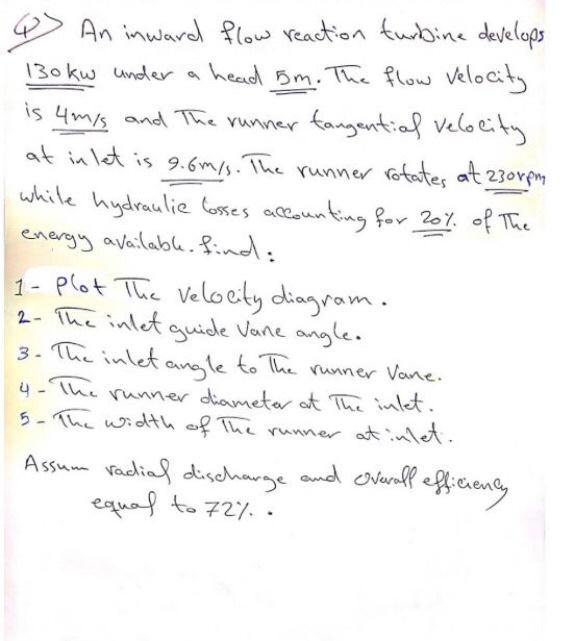 Q> An inward flow reaction turbine develops
130 kw under a head 5m. The flow velocity
is 4m/s and The runner tangential velocity
at inlet is 9.6m/s. The runner rotates at 230rpm
while hydraulic losses accounting for 20% of The
energy available. find:
1- Plot The velocity diagram.
2- The inlet guide vane angle.
3- The inlet angle to The runner Vane.
4- The runner diameter at The inlet.
5- The width of The runner at inlet.
Assum radial discharge and overall efficiency
equal to 72%.